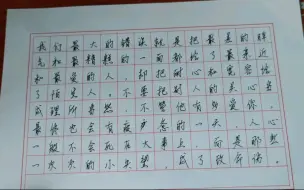 我们最大的错误就是把最差的脾
气和最糟糕的一面都给了最亲近
和最爱的人,却把耐心和宽容给
了陌生人。不要把别人的关心当
成理所当然,不管他有多爱你,
最终也会有疲惫的一天,人心
一般不会死在大事上,而是那然
一次次的小失望,成了致命伤。